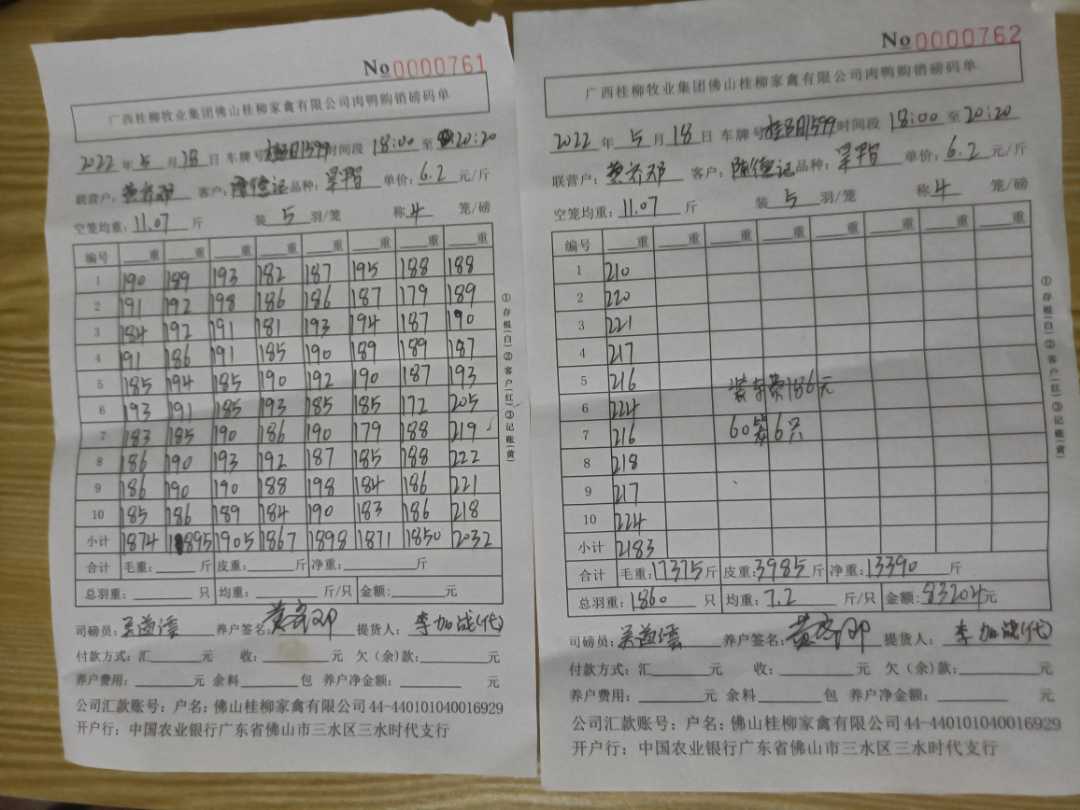 No 0000761
广西桂柳牧业集团佛山桂柳家禽有限公司肉鸭购销磅码单
2022年5月18日 车牌号 时间段 18:00至20:20
联营户: 客户: 陈德记 品种: 单价: 6.2元/斤
空笼均重: 11.07斤 装5羽/笼 称4笼/磅
编号 重 重 重 重 重 重 重 重
1 190 189 193 182 187 195 188 188
2 191 192 198 186 186 187 179 189
3 184 192 191 181 193 194 187 190
4 191 186 191 185 190 189 189 187
5 185 194 185 190 192 190 187 193
6 193 191 185 193 185 185 172 205
7 183 185 190 186 190 179 188 219
8 186 190 193 192 187 185 188 222
9 186 190 190 188 198 184 186 221
10 185 186 189 184 190 183 186 218
小计 1874 1895 1905 1867 1898 1871 1850 2032
合计 毛重: 斤 皮重: 斤 净重: 斤
总羽重: 只 均重: 斤/只 金额: 元
司磅员: 养户签名: 提货人: 李加战(代)
付款方式: 汇 元 收: 元 欠(余)款: 元
养户费用: 元 余料 包 养户净金额: 元
公司汇款账号: 户名: 佛山桂柳家禽有限公司 44-440101040016929
开户行: 中国农业银行广东省佛山市三水区三水时代支行
①存根(白)②客户(红)③记账(黄)
No 0000762
广西桂柳牧业集团佛山桂柳家禽有限公司肉鸭购销磅码单
2022年5月18日 车牌号 时间段 18:00至20:20
联营户: 客户: 陈德记 品种: 单价: 6.2元/斤
空笼均重: 11.07斤 装5羽/笼 称4笼/磅
编号 重 重 重 重 重 重 重 重
1 210
2 220
3 221
4 217
5 216
6 224
7 216
8 218
9 217
10 224
小计 2183
装车费186元
60 6只
合计 毛重: 17375斤 皮重: 3985斤 净重: 13390斤
总羽重: 1860只 均重: 7.2斤/只 金额: 83204元
司磅员: 养户签名: 提货人: 李加战(代)
付款方式: 汇 元 收: 元 欠(余)款: 元
养户费用: 元 余料 包 养户净金额: 元
公司汇款账号: 户名: 佛山桂柳家禽有限公司 44-4401010040016929
开户行: 中国农业银行广东省佛山市三水区三水时代支行
①存根(白)②客户(红)③记账(黄)